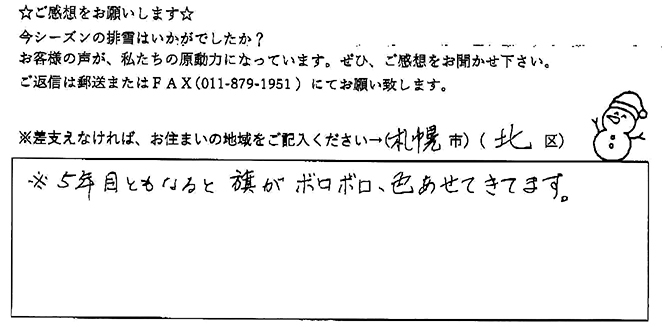 ☆ご感想をお願いします☆
今シーズンの排雪はいかがでしたか？
お客様の声が、私たちの原動力になっています。ぜひ、ご感想をお聞かせ下さい。
ご返信は郵送またはＦＡＸ(011-879-1951）にてお願い致します。
※差支えなければ、お住まいの地域をご記入ください→(札幌 市）( 北 区）
※ 5年目ともなると 旗が ボロボロ、色あせてきてます。